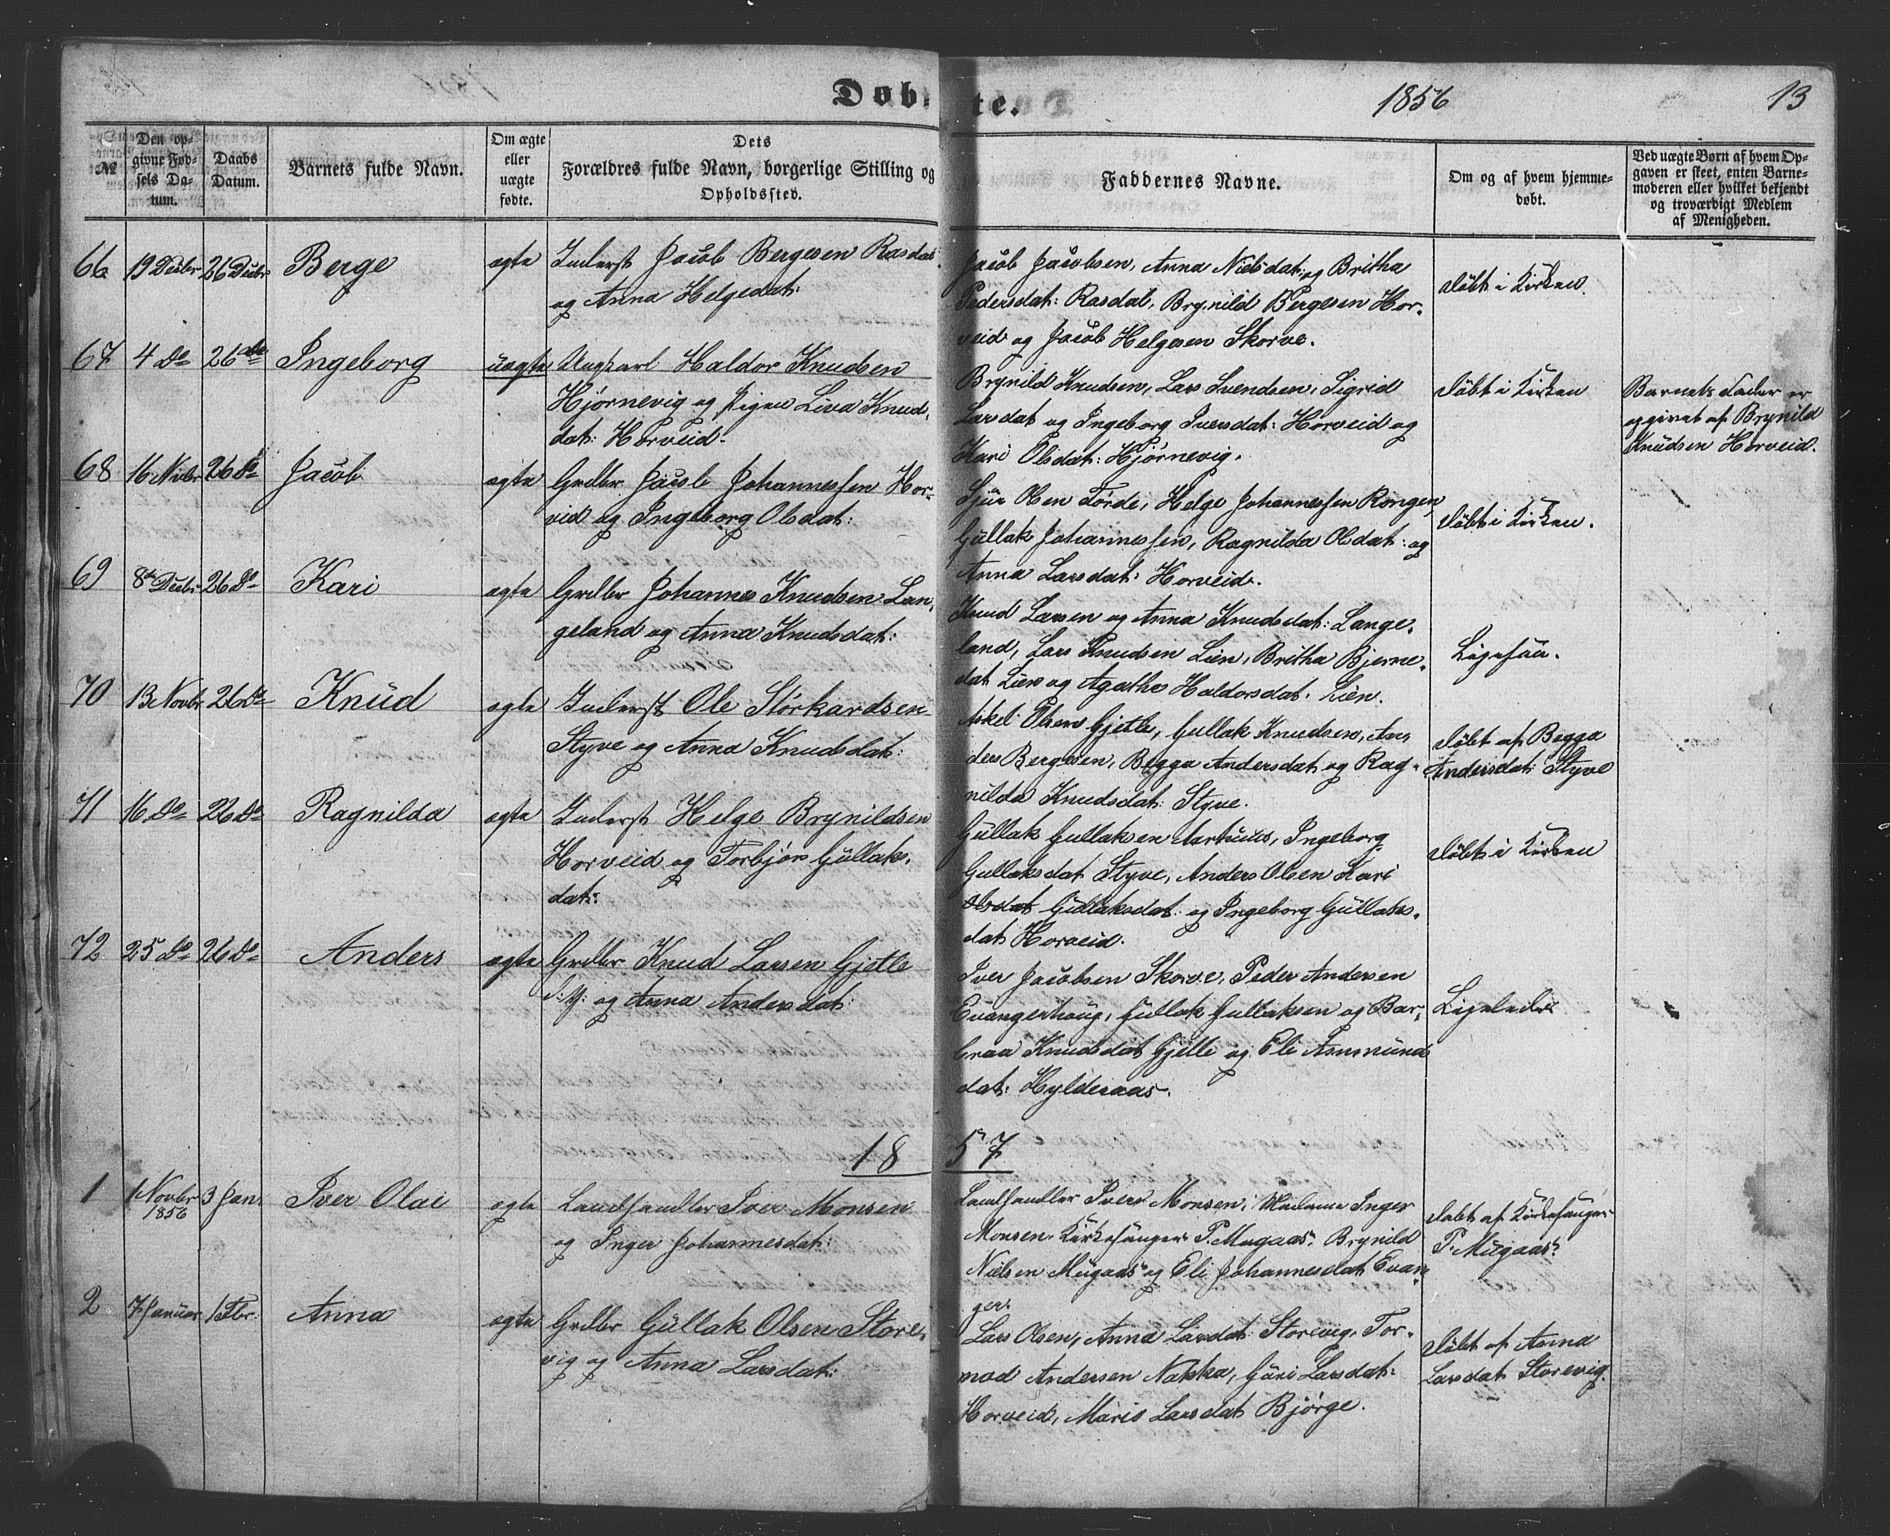 Døbte. 1856 13
№
Den opgivne Fødsels Datum.
Daabs Datum.
Barnets fulde Navn.
Om ægte eller uægte fødte.
Dets Forældres fulde Navn, borgerlige Stilling og Opholdssted.
Faddernes Navne.
Om og af hvem hjemmedøbt.
Ved uægte Børn af hvem Opgaven er skeet, enten Barnemoderen eller hvilket bekjendt og troværdigt Medlem af Menigheden.
66 19 Decbr 26 Decbr Berge ægte Inderst Jacob Bergesen Rasdal
og Anna Helgedat:
Jacob Jacobsen, Anna Nielsdat: og Britha
Pedersdat: Rasdal, Brynild Bergesen Hor-
veid og Jacob Helgesen Skorve.
døbt i Kirken.
67 4 Do 26 do Ingeborg uægte Ungkarl Haldor Knudsen
Hjørnevig og Pigen Liva Knuds-
dat: Horveid.
Brynild Knudsen, Lars Svendsen, Sigrid
Larsdat og Ingeborg Iversdat: Horveid og
Kari Olsdat: Hjørnevig.
døbt i Kirken
Barnets Fader er
opgivet af Brynild
Knudsen Horveid.
68 16 Novbr 26 Do Jacob ægte Grdbr Jacob Johannessen Hor-
veid og Ingeborg Olsdat:
Sjur Olsen Førde, Helge Johannessen Rongen,
Gullak Johannessen, Ragnilda Olsdat: og
Anna Larsdat: Horveid.
døbt i Kirken.
69 8de Decbr 26 Do Kari ægte Grdbr Johannes Knudsen Lan-
geland og Anna Knudsdat:
Knud Larsen og Anna Knudsdat: Lange-
land, Lars Knudsen Lien, Britha Bjerne-
dat Lien og Agatha Haldorsdat: Lien.
Ligesaa.
70 13 Novbr 26 Do Knud ægte Inderst Ole Størkardsen
Styve og Anna Knudsdat:
Askel Olsen Gjelle, Gullak Knudsen, An-
ders Bergesen, Begga Andersdat og Rag-
nilda Knudsdat: Styve.
døbt af Begga
Andersdat: Styve
71 16 Do 26 Do Ragnilda ægte Inderst Helge Brynildsen
Horveid og Torbjør Gullaks-
dat:
Gullak Gullaksen, Ingeborg
Gullaksdat Styve, Anders Olsen Kari
Olsdat Gullaksdat: og Ingeborg Gullaks-
dat Horveid.
døbt i Kirken
72 25 Do 26 Do Anders ægte Grdbr Knud Larsen Gjelle
og Anna Andersdat:
Iver Jacobsen Skorve, Peder Andersen
Evangerhoug, Gullak Gullaksen og Bar-
braa Knudsdat Gjelle og Eli Asmunds
dat: Hylderaas.
Ligeledes
1857
1 1 Novbr 1856 3 Jan. Iver Olai ægte Landhandler Iver Monsen
og Inger Johannesdat:
Landhandler Iver Monsen, Madame Inger
Monsen Kirkesanger P. Mugaas, Brynild
Nielsen Mugaas og Eli Johannesdat Evan-
ger.
døbt af Kirkesanger
P. Mugaas.
2 7 Januar 1 Febr. Anna ægte Grdbr Gullak Olsen Store-
vig og Anna Larsdat:
Lars Olsen, Anna Larsdat: Storevig, Tor-
mod Andersen Nakka, Guri Larsdat:
Horveid, Maris Larsdat Bjørge.
døbt af Anna
Larsdat Storevig.